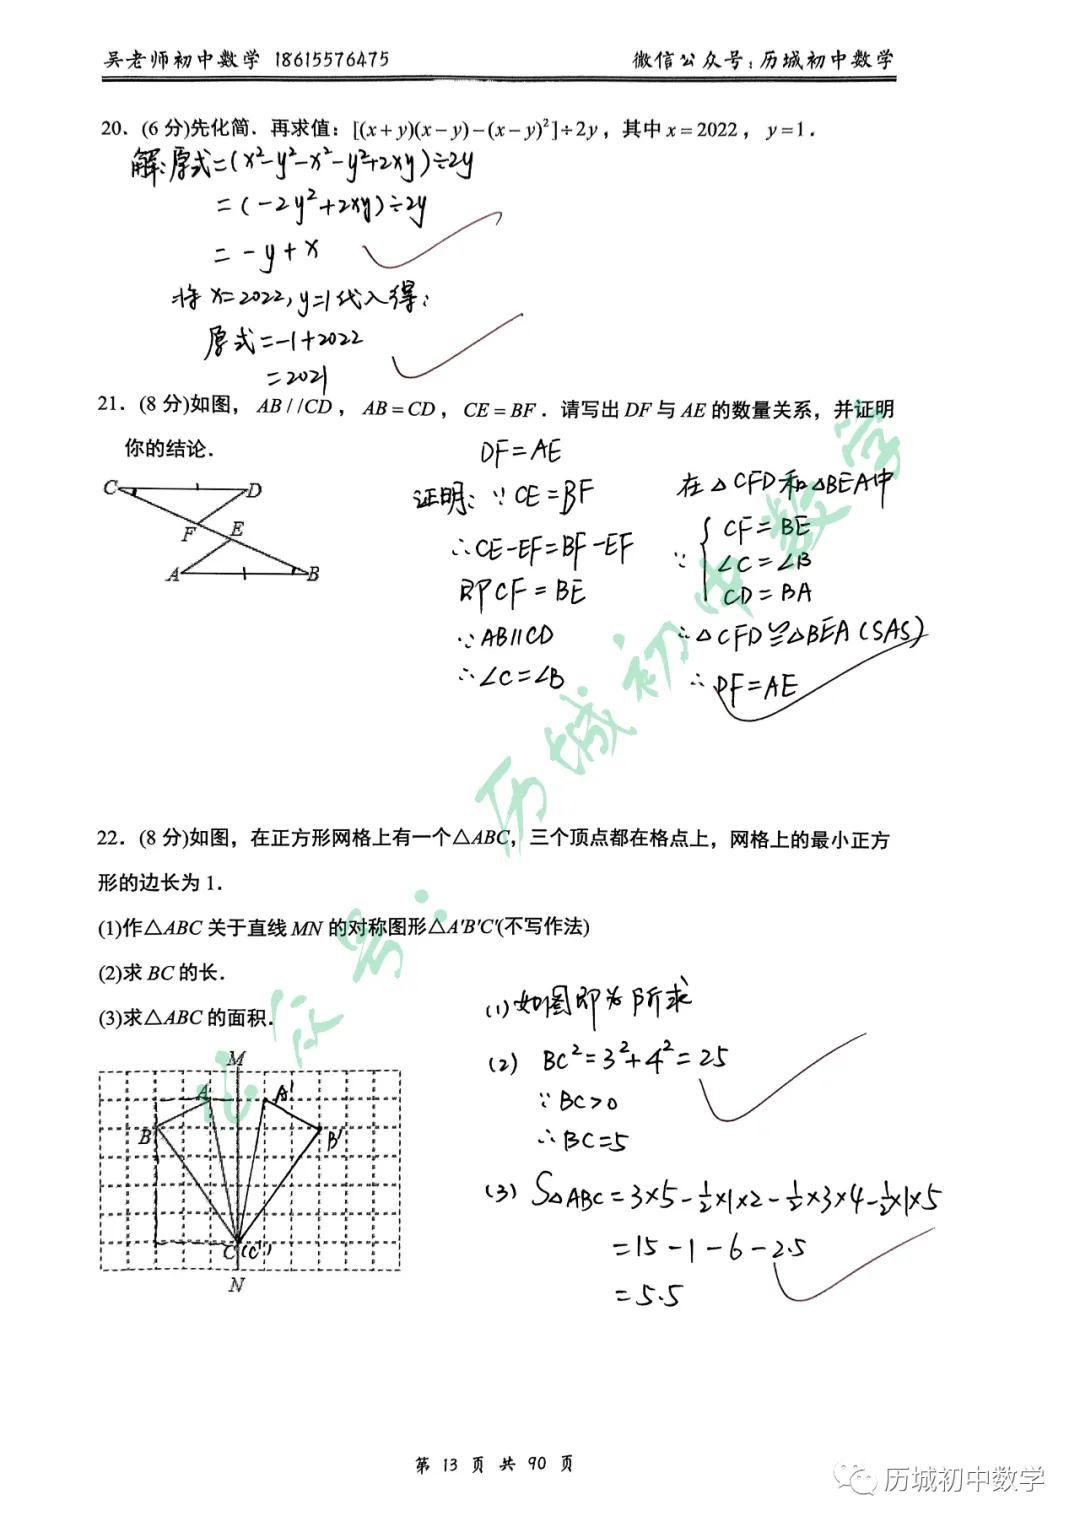 吴老师初中数学 18615576475 微信公众号：历城初中数学
20．(6 分)先化简．再求值：[(x+y)(x−y)−(x−y)²]÷2y，其中 x=2022，y=1．
解：原式=(x²-y²-x²-y²+2xy)÷2y
=(-2y²+2xy)÷2y
=-y+x
将 x=2022,y=1代入得：
原式=-1+2022
=2021
21．(8 分)如图，AB//CD，AB=CD，CE=BF．请写出 DF 与 AE 的数量关系，并证明
你的结论．
DF=AE
证明：∵CE=BF
∴CE-EF=BF-EF
即CF=BE
∵AB∥CD
∴∠C=∠B
在△CFD和△BEA中
∵{CF=BE
∠C=∠B
CD=BA
∴△CFD≌△BEA(SAS)
∴DF=AE
C
D
F
E
A
B
22．(8 分)如图，在正方形网格上有一个△ABC，三个顶点都在格点上，网格上的最小正方
形的边长为 1．
(1)作△ABC 关于直线 MN 的对称图形△A'B'C'(不写作法)
(2)求 BC 的长．
(3)求△ABC 的面积．
(1)如图即为所求
(2) BC²=3²+4²=25
∵BC>0
∴BC=5
(3) S△ABC=3×5-½×1×2-½×3×4-½×1×5
=15-1-6-2.5
=5.5
M
A
A'
B
B'
C(C')
N
公众号：历城初中数学
第 13 页 共 90 页
历城初中数学